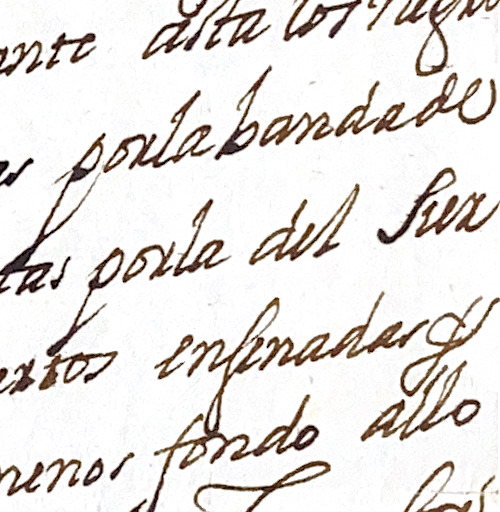 ante asta los
as porla bandade
tas porla del Sur
ertos ensenadas y
menos fondo allo